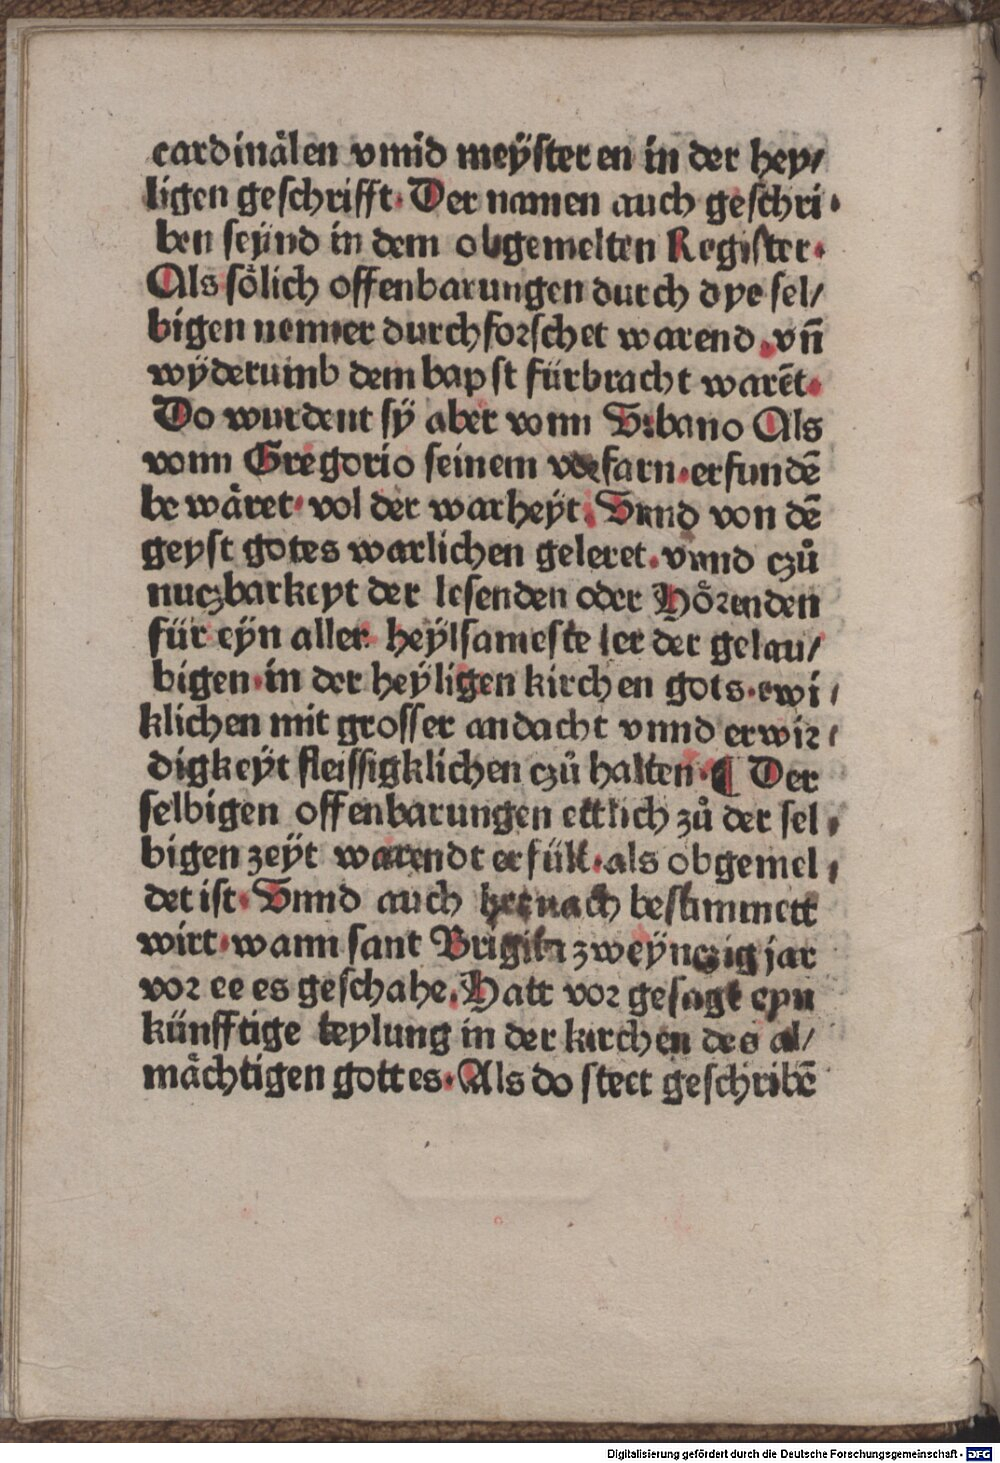 cardinålen vnnd meÿster en in der hey/
ligen geschrifft. Der namen auch geschri/
ben seÿnd in dem obgemelten Register.
Als sölich offenbarungen durch dye sel/
bigen nenner durchforschet warend. vn̄
wÿderumb dem bapst fürbracht warēt.
Do wurdent sÿ aber vonn Vrbano Als
vonn Gregorio seinem vorfarn. erfundē
bewåret. vol der warheÿt. Vnnd von dē
geyst gotes warlichen geleret. vnnd czů
nuczbarkeyt der lesenden oder Hörenden
für eÿn aller heÿlsameste ler der gelau/
bigen. in der heÿligen kirchen gots. ewi/
klichen mit grosser andacht vnnd erwir/
digkeÿt fleissigklichen czů halten. ¶ Der
selbigen offenbarungen ettlich zů der sel/
bigen zeÿt warendt erfült. als obgemel/
det ist. Vnnd auch hernach bestimmett
wirt. wann sant Brigitta zweÿnczig jar
vor ee es geschahe. Hatt vor gesagt eyn
künfftige teylung in der kirchen des al/
mächtigen gottes. Als do stett geschribē
Digitalisierung gefördert durch die Deutsche Forschungsgemeinschaft - DFG